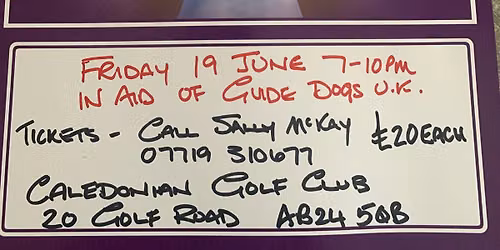 FRIDAY 19 JUNE 7-10PM
IN AID OF GUIDE DOGS U.K.
TICKETS - CALL SALLY McKAY £20 EACH
07719 310677
CALEDONIAN GOLF CLUB
20 GOLF ROAD AB24 5QB